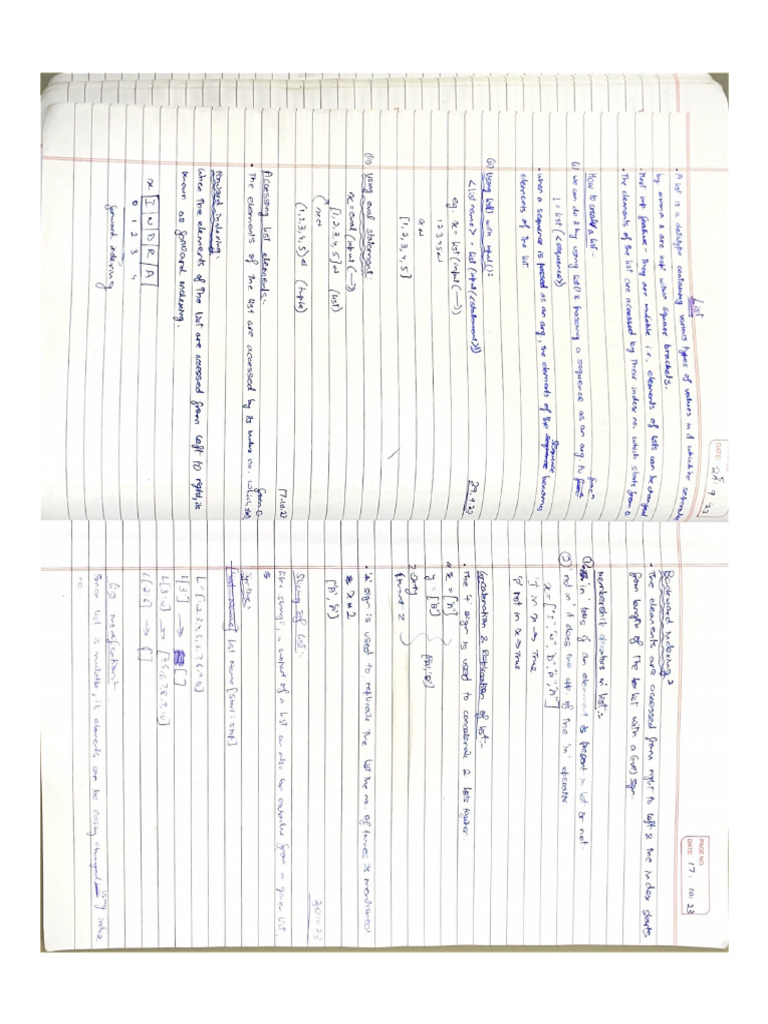 DATE: 25.9.23
List
• A list is a datatype containing various types of values in it which be seperated
by comma & are kept within square brackets.
• Most imp feature - They are mutable i.e. elements of lists can be changed
• The elements of the list are accessed by their index no. which starts from 0
How to create a list -
(i) we can do it by using list() & passing a sequence as an arg. to func
L = list(<sequence>)
• when a sequence is passed as an arg, the elements of the sequence becomes
elements of the list.
29.9.23
(ii) Using list() with input():
<list name> = list(input(<statement>))
eg. x = list(input(—))
12345
x
[1,2,3,4,5]
(iii) Using eval statement:
x = eval(input(—))
[1,2,3,4,5] (list)
(1,2,3,4,5) (tuple)
17.10.23
Accessing list elements:
• The elements of the list are accessed by its index no. which
from 0
Forward indexing:
when the elements of the list are accessed from left to right, is
known as forward indexing.
x I N D R A
0 1 2 3 4
forward indexing
PAGE NO
DATE: 17.10.23
Backward indexing:
• The elements are accessed from right to left & the index starts
from length of the list with a (-ve) sign.
Membership operators in list:
(1) 'in' tells if an element is present in list or not.
(2) 'not in' does the opp of the 'in' operator.
'i' in x → True
'q' not in x → True
Concatenation & Replication of list:-
• The + sign is used to concatenate 2 lists together.
x = ['A']
y = ['B']
z = x+y
print z
• '*' sign is used to replicate the list the no. of times is mentioned
x * 2
['A','A']
30.10.23
Slicing of list:
Like strings, a subpart of a list can also be extracted from a given list,
Syntax:
list name [start : stop]
L = [1,2,3,4,5,6,7,8,9,10]
L[3:] →
L[3:0] → []
L[2:6] → []
List modification:
Since list is mutable, its elements can be easily changed using index
no